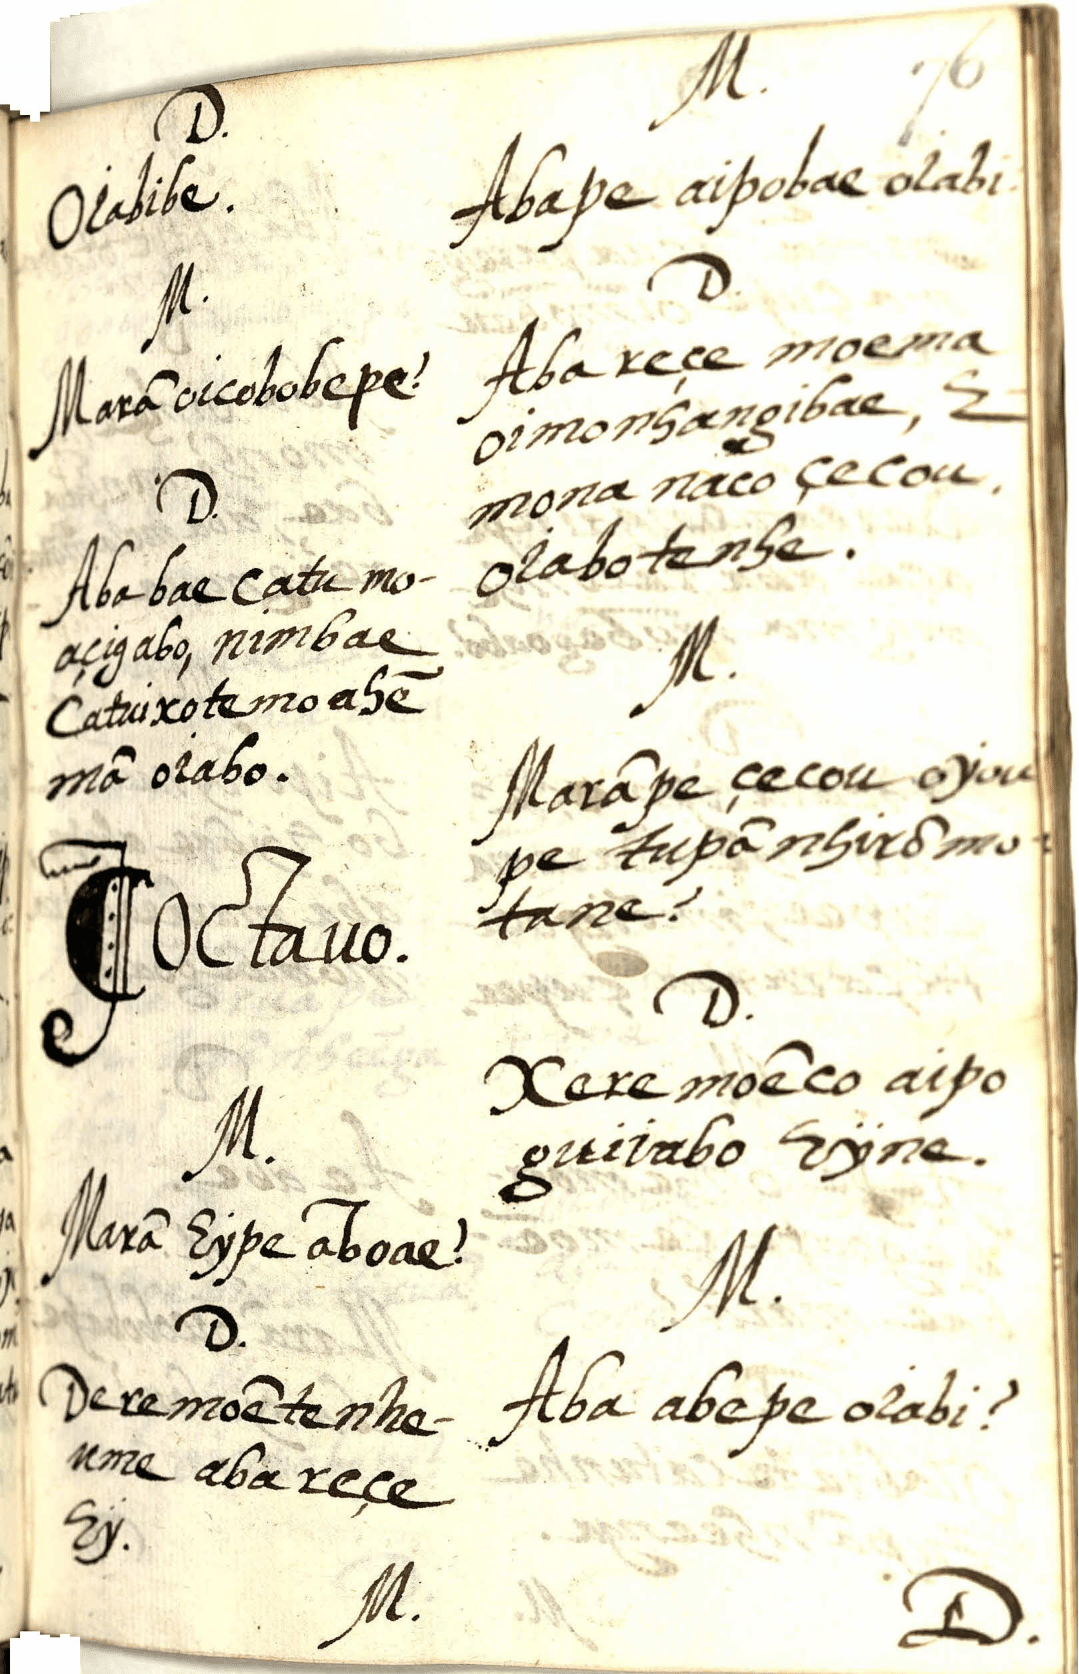 76
D.
Oiabibe.
M.
Marã oicobobepe?
D.
Aba bae catu mo-
açigabo, nimbae
Catuixotemo ahẽ
mã oiabo.
Octauo.
M.
Marã Eype aboae?
D.
Deremoẽtenhe-
ume aba reçe
Ey.
M.
M.
Abape aipobae oiabi
D.
Aba reçe moema
oimonhangibae, E-
mona naco çecou,
oiabotenhe.
M.
Marãpe çecou oyou
pe tupã nhirõmo-
tane?
D.
Xeremoẽco aipo
guiiabo Eÿne.
M.
Aba abepe oiabi?
D.